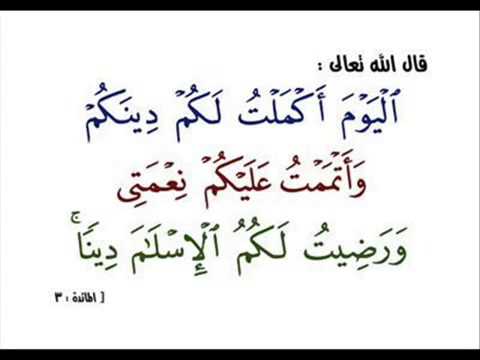 قال الله تعالى :
ٱلۡيَوۡمَ أَكۡمَلۡتُ لَكُمۡ دِينَكُمۡ
وَأَتۡمَمۡتُ عَلَيۡكُمۡ نِعۡمَتِى
وَرَضِيتُ لَكُمُ ٱلۡإِسۡلَـٰمَ دِينًاۚ
[ المائدة : ٣